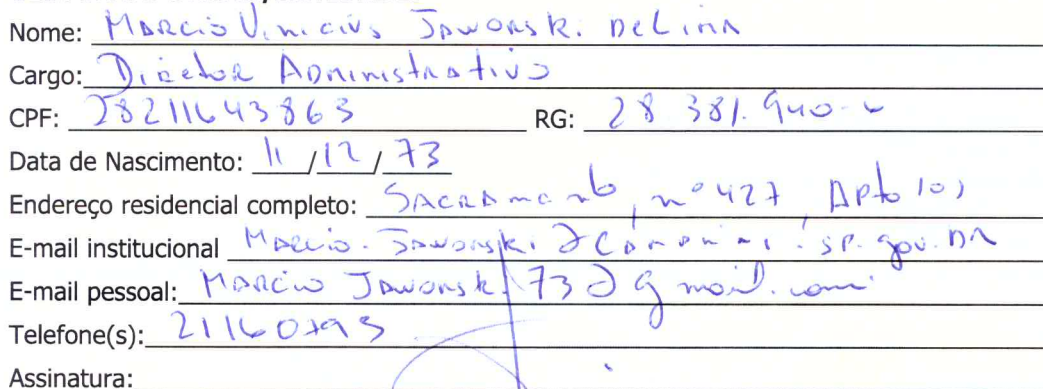 Nome: Marcio Vinicius Jaworski DeLima
Cargo: Diretor Administrativo
CPF: 28211643863 RG: 28 381.940-
Data de Nascimento: 11/12/73
Endereço residencial completo: Sacramento, nº 427, Apto 101
E-mail institucional Marcio.Jaworski@ .sp.gov.br
E-mail pessoal: MarcioJaworski73@gmail.com
Telefone(s): 21160793
Assinatura: